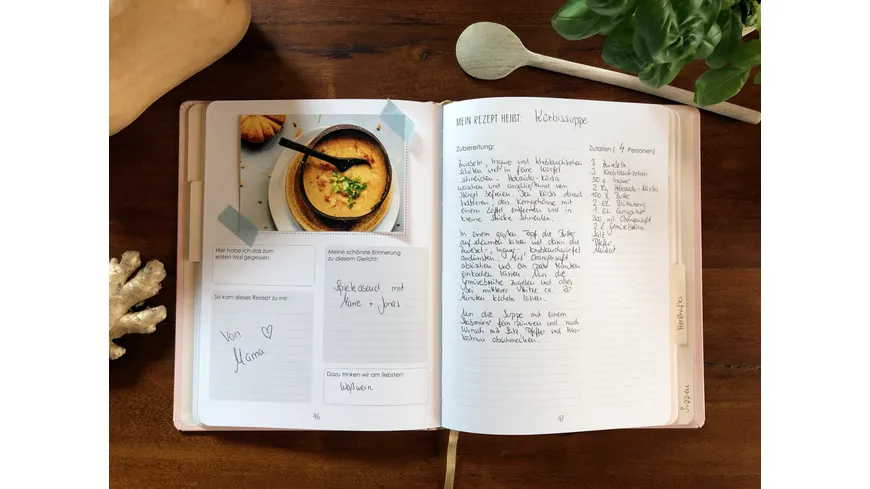 Hier habe ich das zum
ersten Mal gegessen:
So kam dieses Rezept zu mir:
Von ♡
Mama
Meine schönste Erinnerung
zu diesem Gericht:
Spieleabend mit
Marie + Jonas
Dazu trinken wir am liebsten:
Weißwein
46
MEIN REZEPT HEIßT: Kürbissuppe
Zubereitung:
Zwiebeln, Ingwer und Knoblauchzehen
schälen und in feine Würfel
schneiden. Hokkaido-Kürbis
waschen und anschließend vom
Stängel befreien. Den Kürbis danach
halbieren, das Kerngehäuse mit
einem Löffel entfernen und in
kleine Stücke schneiden.
In einem großen Topf die Butter
aufschäumen lassen und dann die
Zwiebel-, Ingwer-, Knoblauchwürfel
andünsten. Mit Orangensaft
ablöschen und ein paar Minuten
einkochen lassen. Nun die
Gemüsebrühe zugeben und alles
bei mittlerer Hitze ca. 20
Minuten köcheln lassen.
Nun die Suppe mit einem
Stabmixer fein pürieren und nach
Wunsch mit Salz, Pfeffer und Mus-
katnuss abschmecken.
Zutaten ( 4 Personen)
3 Zwiebeln
3 Knoblauchzehen
30 g Ingwer
2 Kg Hokkaido-Kürbis
100 g Butter
2 EL
1 EL
300 ml Orangensaft
2 L Gemüsebrühe
Salz
Pfeffer
Muskat
47
Herzhaftes
Suppen